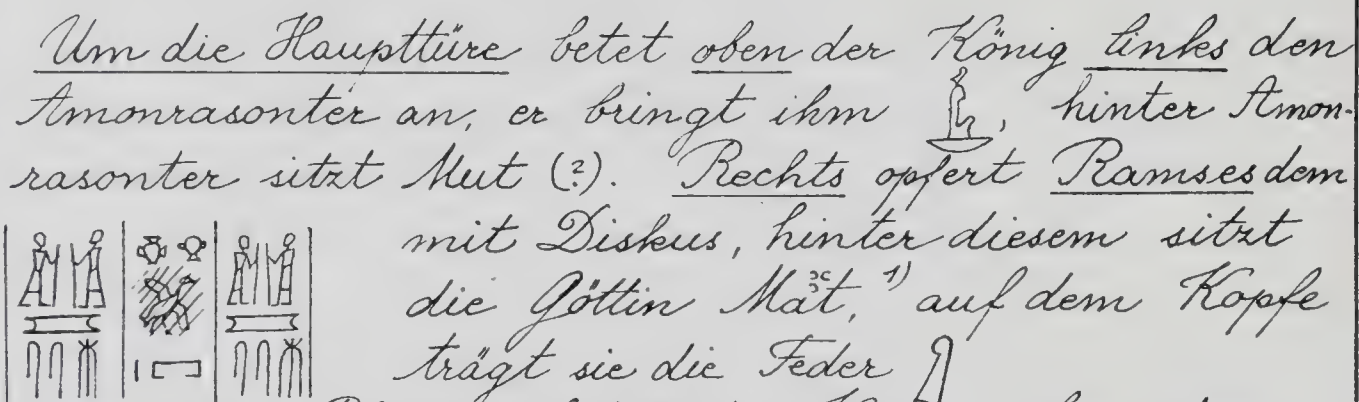 Um die Haupttüre betet oben der König links den
Amonrasonter an, er bringt ihm , hinter Amon-
rasonter sitzt Mut (?). Rechts opfert Ramses dem
mit Diskus, hinter diesem sitzt
die Göttin Maꜣt, 1) auf dem Kopfe
trägt sie die Feder